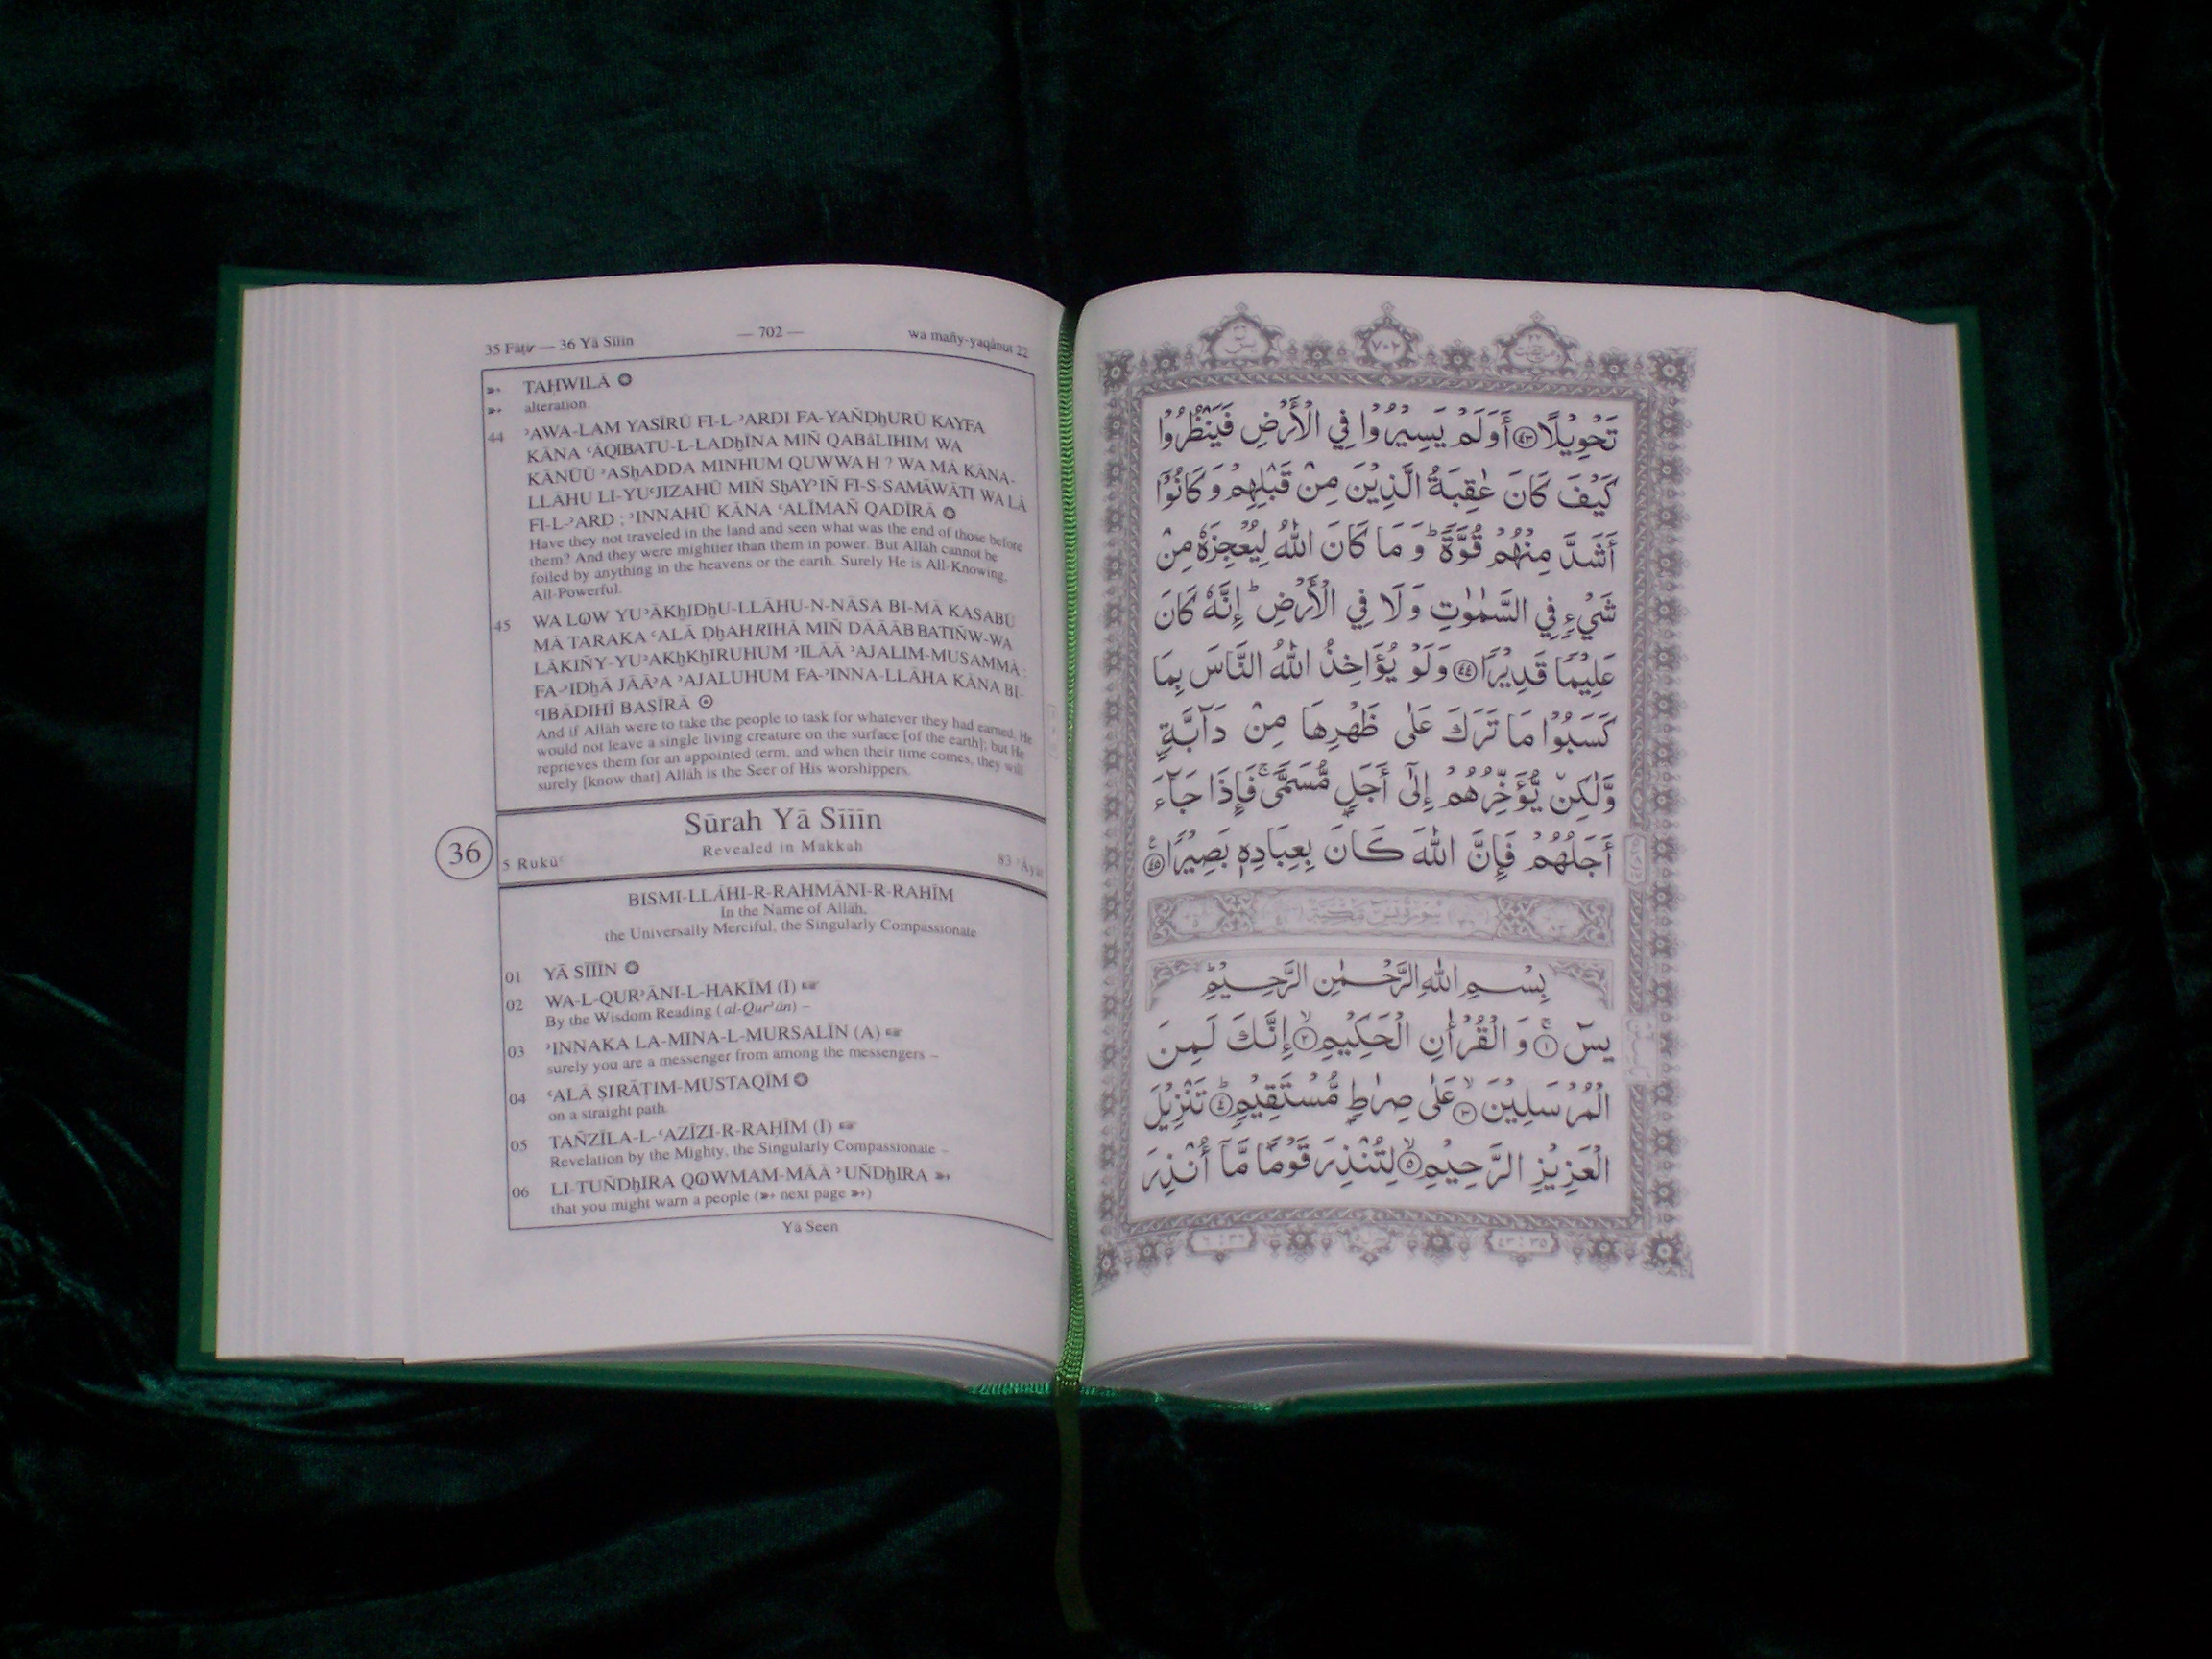 35 Fāṭir — 36 Yā Sīīīn
— 702 —
wa mañy-yaqānut 22
TAḤWILĀ
alteration.
44 ʾAWA-LAM YASĪRŪ FI-L-ʾARḌI FA-YAÑḌhURŪ KAYFA
KĀNA ʿĀQIBATU-L-LADhĪNA MIÑ QABāLIHIM WA
KĀNŪŪ ʾAShADDA MINHUM QUWWAH ? WA MĀ KĀNA-
LLĀHU LI-YUʿJIZAHŪ MIÑ ShAYʾIÑ FI-S-SAMĀWĀTI WA LĀ
FI-L-ʾARḌ ; ʾINNAHŪ KĀNA ʿALĪMAÑ QADĪRĀ
Have they not traveled in the land and seen what was the end of those before
them? And they were mightier than them in power. But Allāh cannot be
foiled by anything in the heavens or the earth. Surely He is All-Knowing,
All-Powerful.
45 WA LOW YUʾĀKhIDhU-LLĀHU-N-NĀSA BI-MĀ KASABŪ
MĀ TARAKA ʿALĀ ḌhAHRIHĀ MIÑ DĀĀĀBBATIÑW-WA
LĀKIÑY-YUʾAKhKhIRUHUM ʾILĀĀ ʾAJALIM-MUSAMMĀ ;
FA-ʾIDhĀ JĀĀʾA ʾAJALUHUM FA-ʾINNA-LLĀHA KĀNA BI-
ʿIBĀDIHĪ BAṢĪRĀ
And if Allāh were to take the people to task for whatever they had earned, He
would not leave a single living creature on the surface [of the earth]; but He
reprieves them for an appointed term, and when their time comes, they will
surely [know that] Allāh is the Seer of His worshippers.
36
Sūrah Yā Sīīīn
Revealed in Makkah
5 Rukūʿ
83 ʾĀyāt
BISMI-LLĀHI-R-RAḤMĀNI-R-RAḤĪM
In the Name of Allāh,
the Universally Merciful, the Singularly Compassionate
01 YĀ SĪĪĪN
02 WA-L-QURʾĀNI-L-ḤAKĪM (I)
By the Wisdom Reading (al-Qurʾān) –
03 ʾINNAKA LA-MINA-L-MURSALĪN (A)
surely you are a messenger from among the messengers –
04 ʿALĀ ṢIRĀṬIM-MUSTAQĪM
on a straight path.
05 TAÑZĪLA-L-ʿAZĪZI-R-RAḤĪM (I)
Revelation by the Mighty, the Singularly Compassionate –
06 LI-TUÑDhIRA QOWMAM-MĀĀ ʾUÑDhIRA
that you might warn a people (➳ next page ➳)
Yā Seen
يٰسٓ
٧٠٢
تَحْوِيْلًا ﴿٤٣﴾ أَوَلَمْ يَسِيْرُوْا فِي الْأَرْضِ فَيَنْظُرُوْا
كَيْفَ كَانَ عٰقِبَةُ الَّذِيْنَ مِنْ قَبْلِهِمْ وَكَانُوْٓا
أَشَدَّ مِنْهُمْ قُوَّةً ؕ وَمَا كَانَ اللّٰهُ لِيُعْجِزَهٗ مِنْ
شَيْءٍ فِي السَّمٰوٰتِ وَلَا فِي الْأَرْضِ ؕ إِنَّهٗ كَانَ
عَلِيْمًا قَدِيْرًا ﴿٤٤﴾ وَلَوْ يُؤَاخِذُ اللّٰهُ النَّاسَ بِمَا
كَسَبُوْا مَا تَرَكَ عَلٰى ظَهْرِهَا مِنْ دَآبَّةٍ
وَّلٰكِنْ يُّؤَخِّرُهُمْ إِلٰٓى أَجَلٍ مُّسَمًّى ۚ فَإِذَا جَآءَ
أَجَلُهُمْ فَإِنَّ اللّٰهَ كَانَ بِعِبَادِهٖ بَصِيْرًا ﴿٤٥﴾
بِسْمِ اللّٰهِ الرَّحْمٰنِ الرَّحِيْمِ
يٰسٓ ﴿١﴾ وَالْقُرْاٰنِ الْحَكِيْمِ ﴿٢﴾ إِنَّكَ لَمِنَ
الْمُرْسَلِيْنَ ﴿٣﴾ عَلٰى صِرَاطٍ مُّسْتَقِيْمٍ ﴿٤﴾ تَنْزِيْلَ
الْعَزِيْزِ الرَّحِيْمِ ﴿٥﴾ لِتُنْذِرَ قَوْمًا مَّآ أُنْذِرَ
٣٦ : ٦
٣٥ : ٤٣